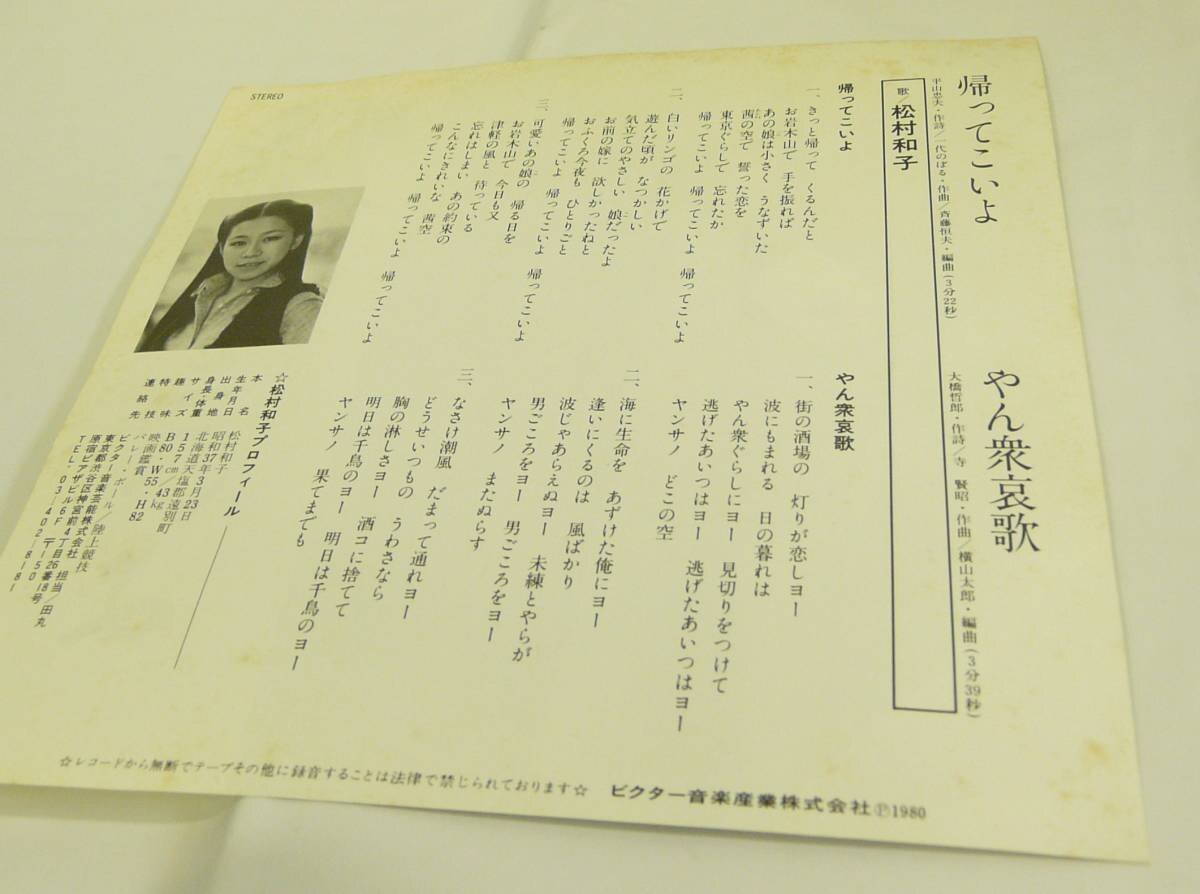 STEREO
帰ってこいよ
平山忠夫・作詩/一代のぼる・作曲/斉藤恒夫・編曲(3分22秒)
やん衆哀歌
大橋哲郎・作詩/寺 賢昭・作曲/横山太郎・編曲(3分39秒)
歌/松村和子
帰ってこいよ
一、きっと帰って くるんだと
お岩木山で 手を振れば
あの娘は小さく うなずいた
茜の空で 誓った恋を
東京ぐらしで 忘れたか
帰ってこいよ 帰ってこいよ 帰ってこいよ
二、白いリンゴの 花かげで
遊んだ頃が なつかしい
気立てのやさしい 娘だったよ
お前の嫁に 欲しかったねと
おふくろ今夜も ひとりごと
帰ってこいよ 帰ってこいよ 帰ってこいよ
三、可愛いあの娘の 帰る日を
お岩木山で 今日も又
津軽の風と 待っている
忘れはしまい あの約束の
こんなにきれいな 茜空
帰ってこいよ 帰ってこいよ 帰ってこいよ
やん衆哀歌
一、街の酒場の 灯りが恋しヨー
波にもまれる 日の暮れは
やん衆ぐらしにヨー 見切りをつけて
逃げたあいつはヨー 逃げたあいつはヨー
ヤンサノ どこの空
二、海に生命を あずけた俺にヨー
逢いにくるのは 風ばかり
波じゃあらえぬヨー 未練とやらが
男ごころをヨー 男ごころをヨー
ヤンサノ またぬらす
三、なさけ潮風 だまって通れヨー
どうせいつもの うわさなら
胸の淋しさヨー 酒コに捨てて
明日は千鳥のヨー 明日は千鳥のヨー
ヤンサノ 果てまでも
☆松村和子プロフィール
本名 松村和子
生年月日 昭和37年3月23日
出身地 北海道天塩郡遠別町
身長・体重 157cm/43kg
サイズ B80・W55・H82
趣味 映画鑑賞
特技 バレー・ボール/陸上競技
連絡先 ビクター音楽芸能株式会社 担当/田丸
東京都渋谷区神宮前4丁目26番18号
原宿ピアザビル6F 〒150
TEL.03-402-8181
☆レコードから無断でテープその他に録音することは法律で禁じられております☆ ビクター音楽産業株式会社Ⓟ1980